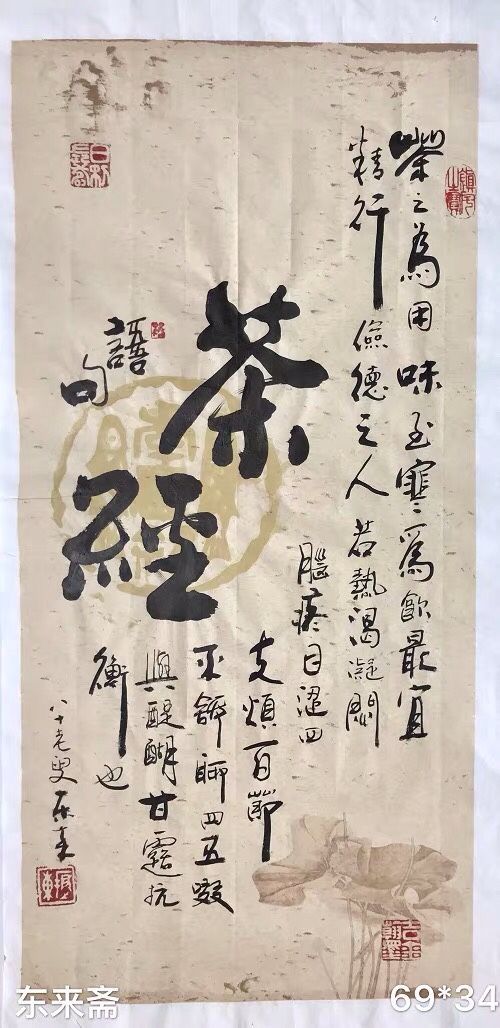 茶之為用味至寒為飲最宜
精行儉德之人若熱渴凝悶
腦疼目澀四
支煩百節
不舒聊四五啜
與醍醐甘露抗
衡也
茶
經
語句
八十老叟东来
东来斋
69*34